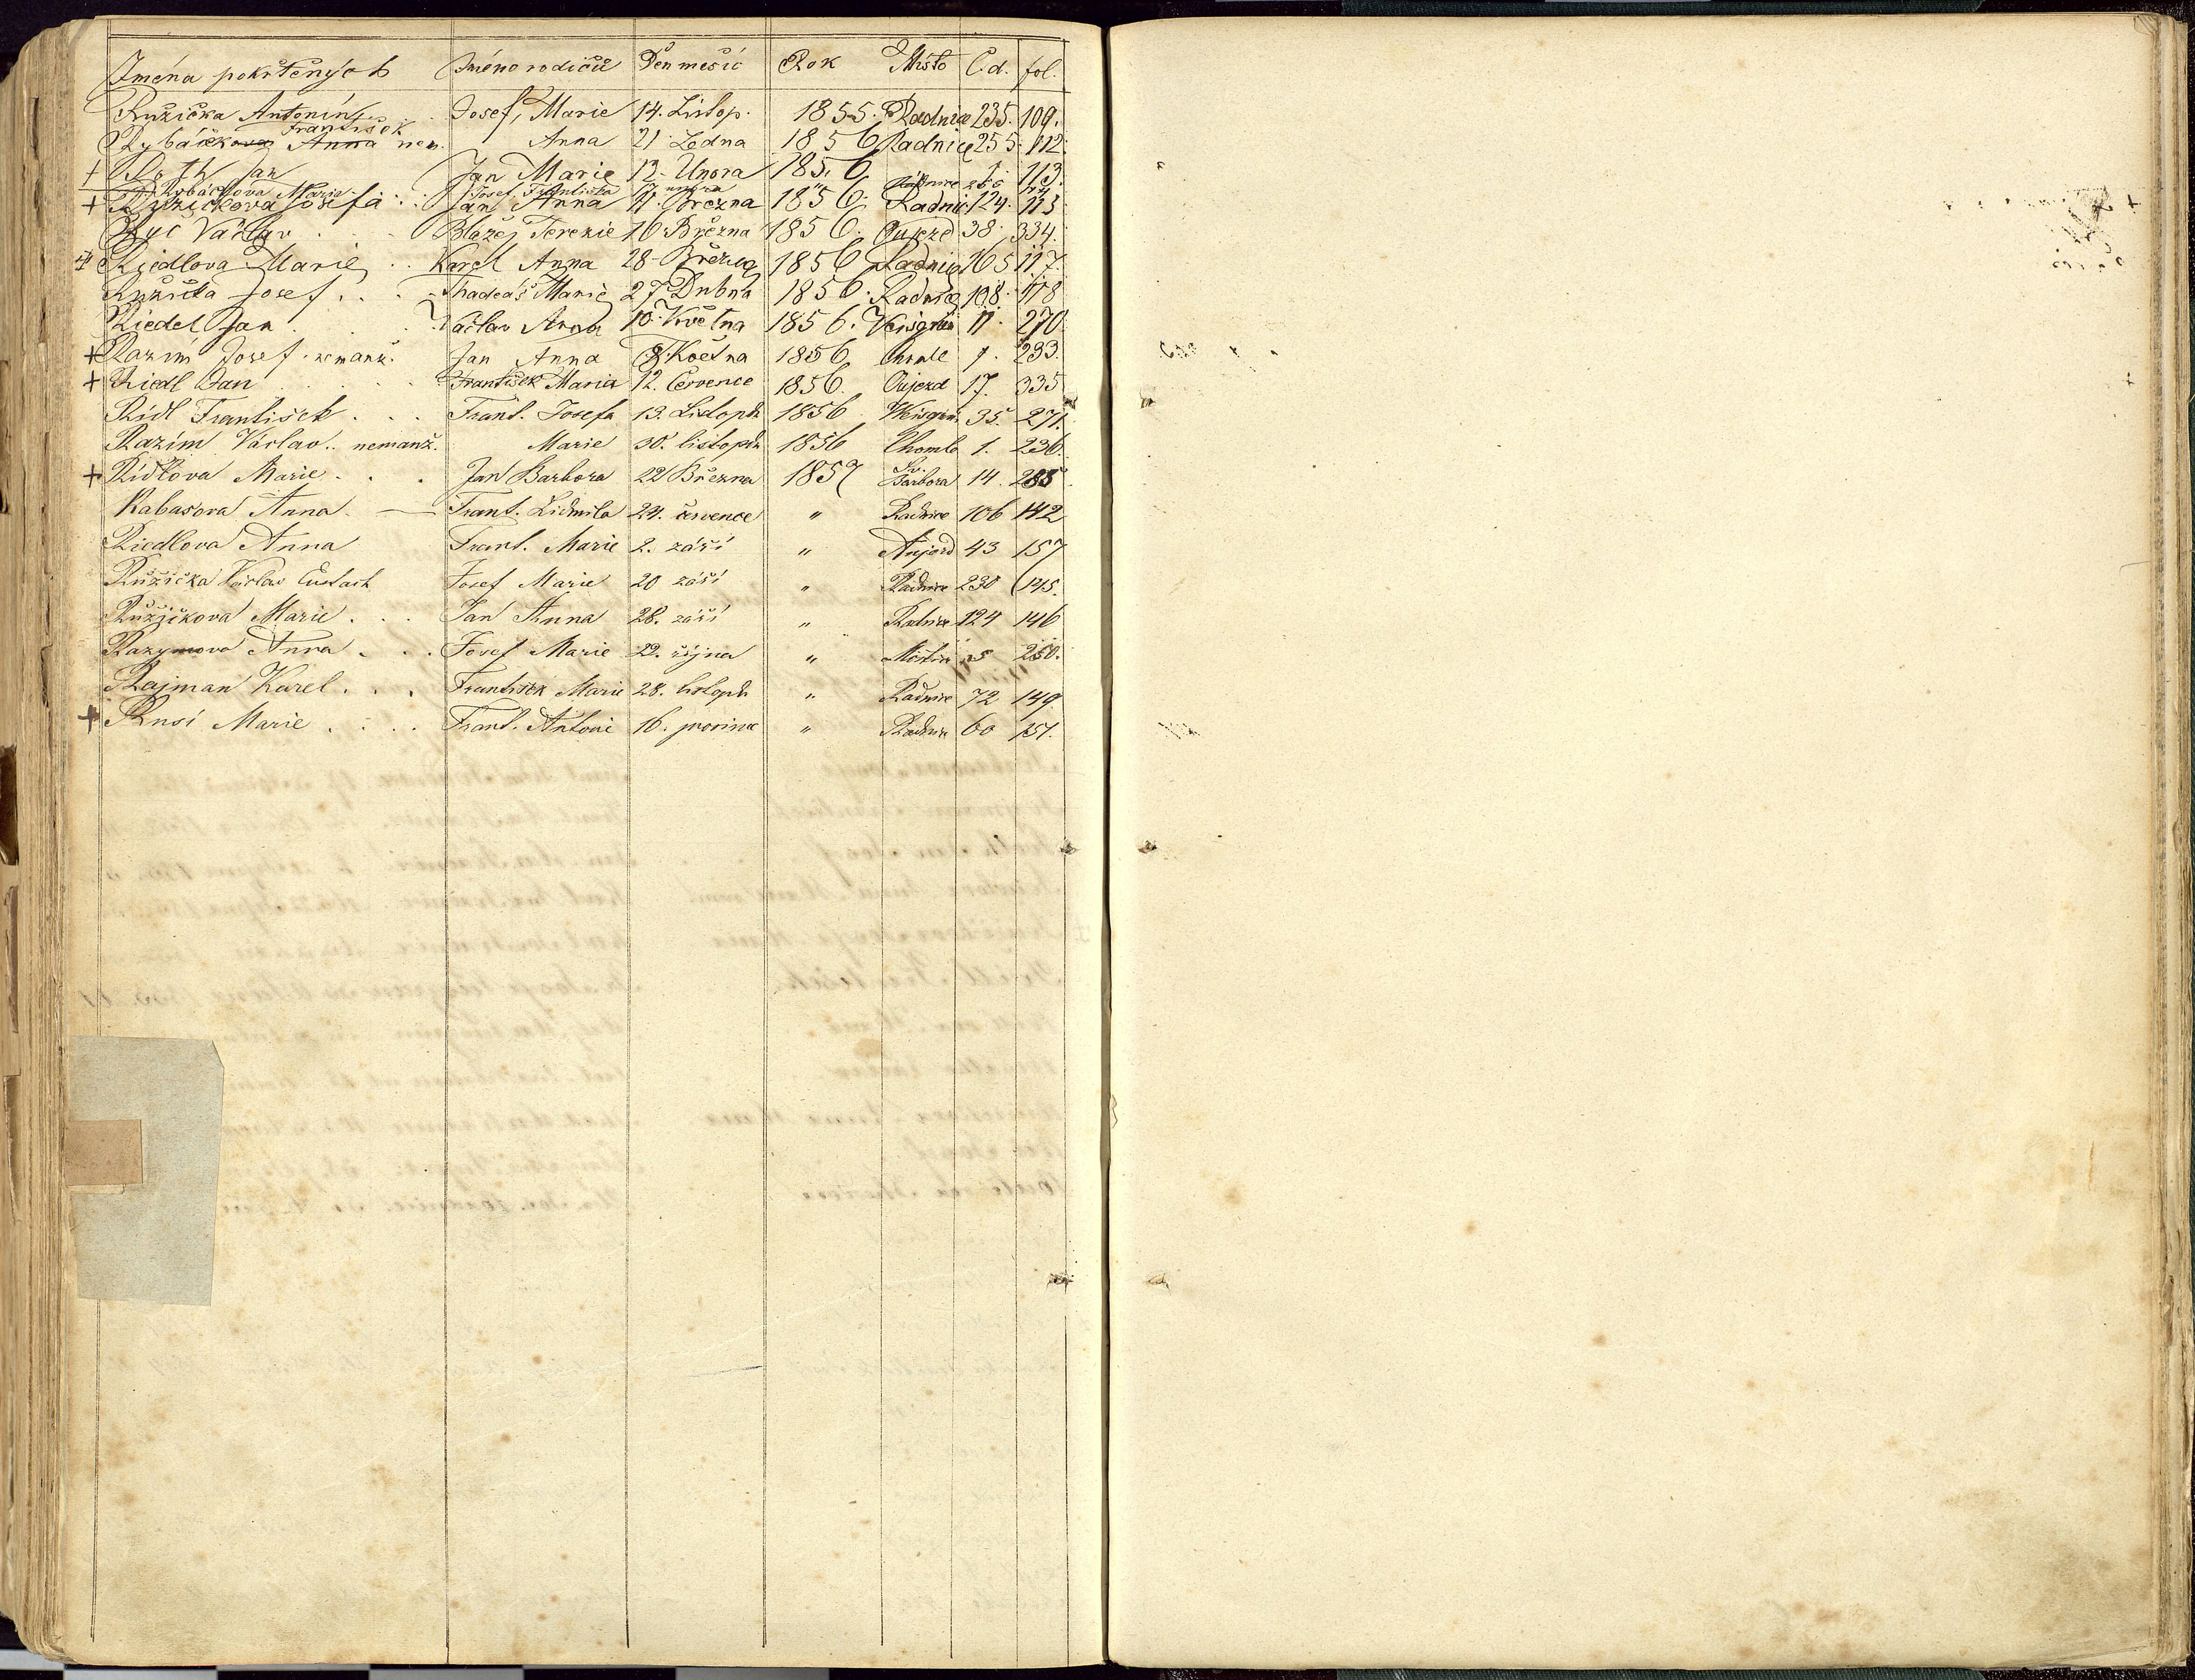 Jména pokřtěných Jméno rodičů Den měsíc Rok Místo Č.d. fol.
Růžička Antonín Josef, Marie 14. Listop. 1855. Radnice 235. 109.
František
Rybáčkova Anna nem. Anna 21 Ledna 1856 Radnice 255. 112.
+ Roth Jan Jan Marie 12. Unora 1856 1. 113.
Rybáčkova Marie Josef Františka 17 unora " Radnice 266 114
+ Růžičkova Josefa Jan Anna 11. Března 1856. Radnic. 124. 115
Ryc Václav Blažej Terezie 16 Března 1856. Oujezd 38. 334.
+ Riedlova Marie Karel Anna 28 Března 1856 Radnice 165 117.
Růžička Josef Thadeáš Marie 27 Dubna 1856. Radnice 108. 118
Riedel Jan Václav Anna 10. Května 1856. 11. 270.
+ Razím Josef nemanž. Jan Anna 8. Května 1856 7. 233.
+ Riedl Jan František Maria 12. Července 1856 Oujezd 17. 335
Rídl František Frant. Josefa 13. Listopdu 1856 35. 271.
Razím Václav nemanž. Marie 30. listopdu 1856 1. 236.
+ Rídlova Marie Jan Barbora 22 Března 1857 Sv. Barbora 14. 285
Rabasova Anna Frant. Lidmila 24. července " Radnice 106 142
Riedlova Anna Frant. Marie 2. září " 43 157
Růžička Václav Eustach Josef Marie 20 září " Radnice 230 145.
Růžičkova Marie Jan Anna 28. září " Radnice 124 146
Razymova Anna Josef Marie 22. října " 5 250.
Rajman Karel František Marie 28. listopdu " Radnice 72 149
+ Rusí Marie Frant. Antonie 16. prosince " Radnice 60 151.